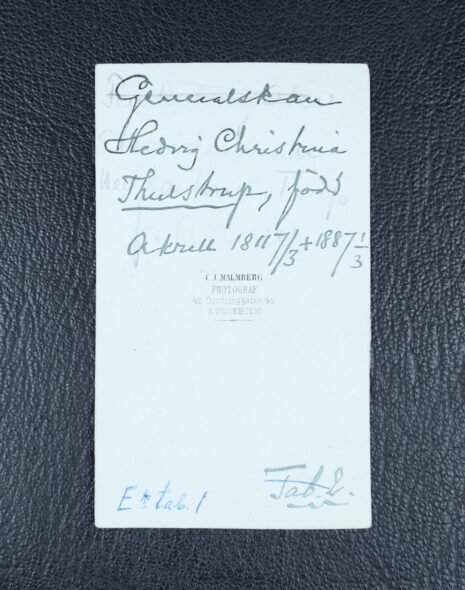 Generalskan
Hedvig Christina
Thulstrup, född
Akrell 1811 7/3 + 1887 1/3
C J MALMBERG
PHOTOGRAF
42 Drottninggatan 42.
STOCKHOLM
E tab. 1
Tab. E.